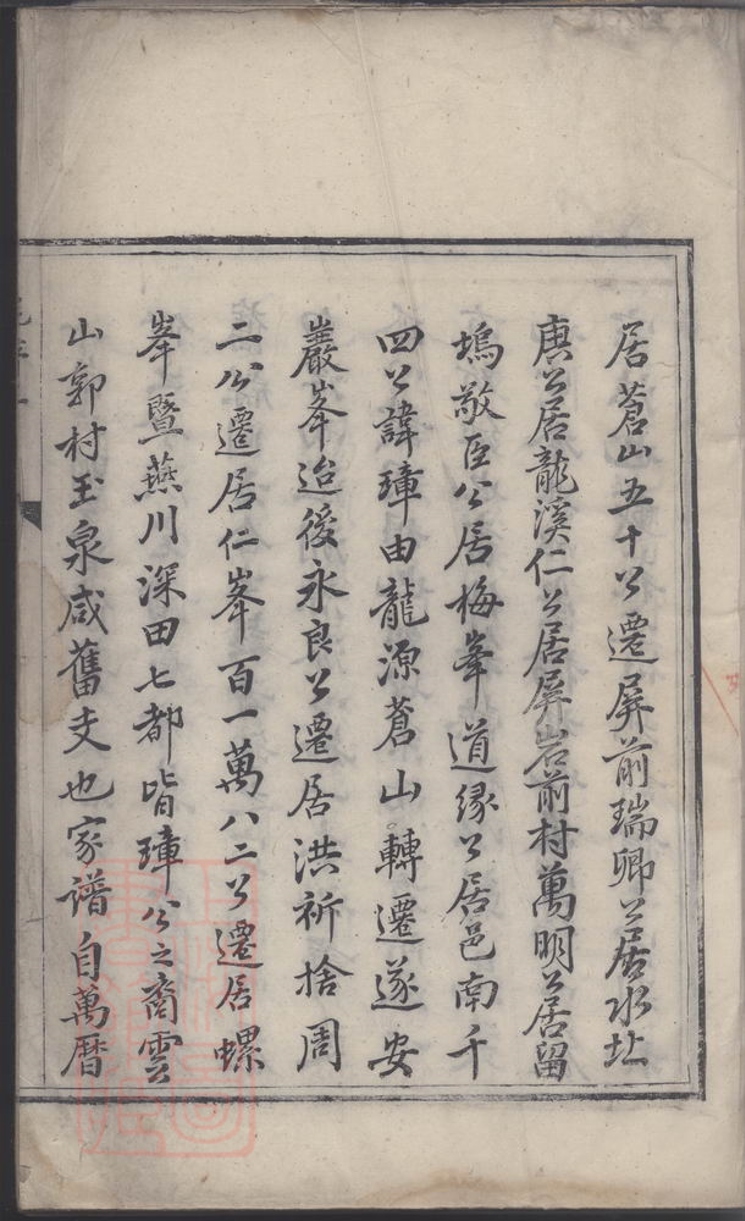 居蒼山五十公遷屏前瑞卿公居水址
庚公居龍溪仁公居屏岩前村萬明公居留
塢敬臣公居梅峯道緣公居邑南千
四公諱璋由龍源蒼山轉遷遂安
巖峯迨後永良公遷居洪祈捨周
二公遷居仁峯百一萬八二公遷居螺
峯暨燕川深田七都皆璋公之裔雲
山郭村玉泉咸舊支也家譜自萬曆